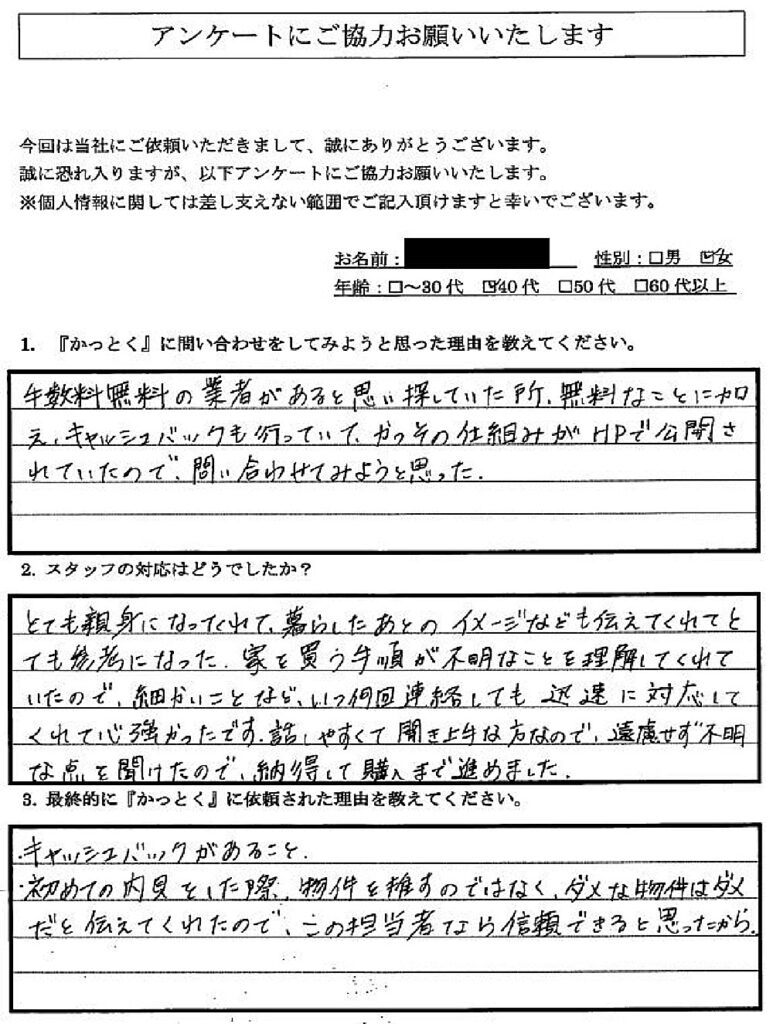 アンケートにご協力お願いいたします
今回は当社にご依頼いただきまして、誠にありがとうございます。
誠に恐れ入りますが、以下アンケートにご協力お願いいたします。
※個人情報に関しては差し支えない範囲でご記入頂けますと幸いでございます。
お名前： 性別：□男 ☑女
年齢：□～30代 ☑40代 □50代 □60代以上
1. 『かっとく』に問い合わせをしてみようと思った理由を教えてください。
手数料無料の業者があると思い探していた所、無料なことに加
え、キャッシュバックも行っていて、かつその仕組みがHPで公開さ
れていたので、問い合わせてみようと思った.
2. スタッフの対応はどうでしたか？
とても親身になってくれて、暮らしたあとのイメージなども伝えてくれてと
ても参考になった. 家を買う手順が不明なことを理解してくれて
いたので、細かいことなど、いつ何回連絡しても迅速に対応して
くれて心強かったです. 話しやすくて聞き上手な方なので、遠慮せず不明
な点を聞けたので、納得して購入まで進めました.
3. 最終的に『かっとく』に依頼された理由を教えてください。
・キャッシュバックがあること.
・初めての内見をした際、物件を推すのではなく、ダメな物件はダメ
だと伝えてくれたので、この担当者なら信頼できると思ったから.